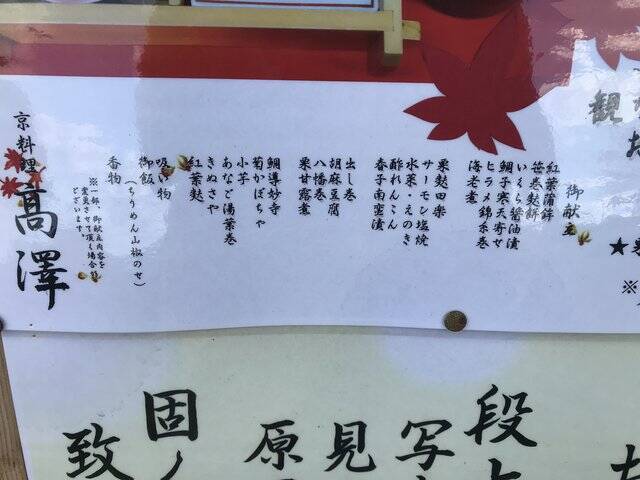 観
御献立
紅葉蒲鉾
笹巻麩餅
いくら醤油漬
鯛子寒天寄せ
ヒラメ錦糸巻
海老煮
粟麩田楽
サーモン塩焼
水菜・えのき
酢れんこん
春子南蛮漬
出し巻
胡麻豆腐
八幡巻
栗甘露煮
鯛導妙寺
菊かぼちゃ
小芋
あなご湯葉巻
きぬさや
紅葉麩
吸い物
御飯
(ちりめん山椒のせ)
香物
※一部、御献立内容を
変更させて頂く場合が
ございます。
京料理 高澤
★
※
段
写
見
原
固
致